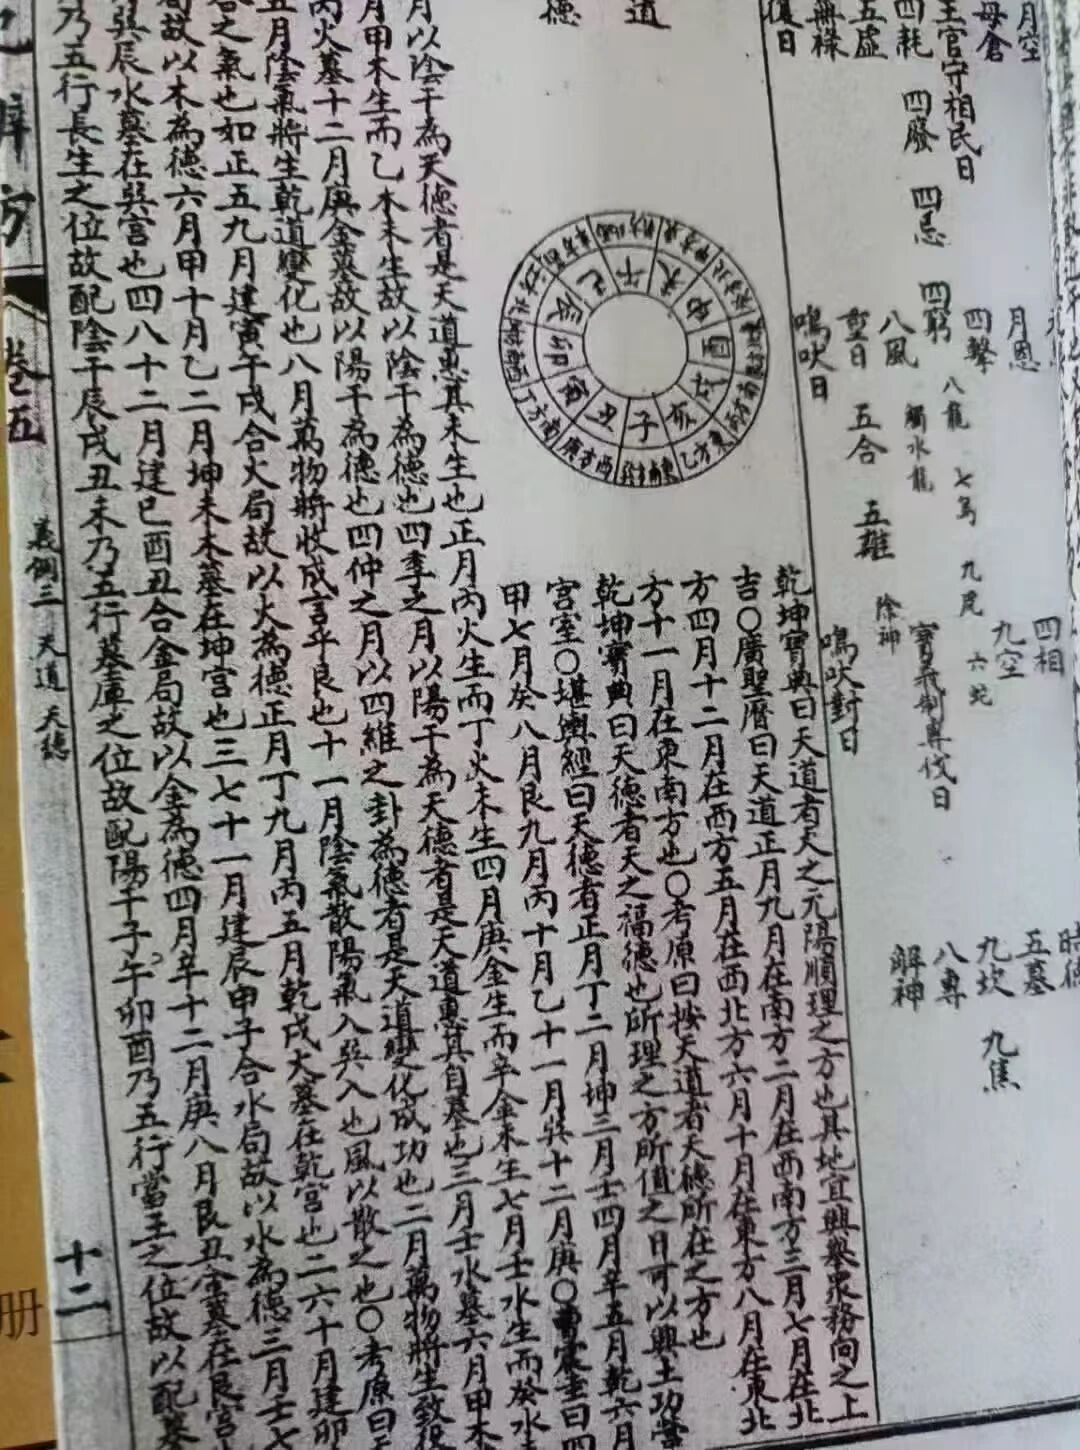 月空 四相 時德
母倉 月恩 九空 五墓
王官守相民日 四擊 九坎 九焦
四耗 四廢 四忌 四窮 八龍 七鳥 九虎 六蛇 八專
五虛 八風 觸水龍 寶義制專伐日
無祿 五合 五離 除神 解神
復日 鳴吠日 鳴吠對日
道
德
子 丑 寅 卯 辰 巳 午 未 申 酉 戌 亥
乾坤寶典曰天道者天之元陽順理之方也其地宜興舉眾務向之上
吉○廣聖曆曰天道正月九月在南方二月在西南方三月七月在北
方四月十二月在西方五月在西北方六月十月在東方八月在東北
方十一月在東南方也○考原曰按天道者天德所在之方也
乾坤寶典曰天德者天之福德也所理之方所值之日可以興土功營
宮室○堪輿經曰天德者正月丁二月坤三月壬四月辛五月乾六月
甲七月癸八月艮九月丙十月乙十一月巽十二月庚○曹震圭曰四
月以陰干為天德者是天道惠其未生也正月丙火生而丁火未生四月庚金生而辛金未生七月壬水生而癸水
月甲木生而乙木未生故以陰干為德也四季之月以陽干為天德者是天道惠其自墓也三月壬水墓六月甲木
丙火墓十二月庚金墓故以陽干為德也四仲之月以四維之卦為德者是天道變化成功也二月萬物將生致役
五月陰氣將生乾道變化也八月萬物將收成言乎艮也十一月陰氣散陽氣入巽入也風以散之也○考原曰
之氣也如正五九月建寅午戌合火局故以火為德正月丁九月丙五月乾戌火墓在乾宮也二六十月建卯
局故以木為德六月甲十月乙二月坤未木墓在坤宮也三七十一月建辰申子合水局故以水為德三月壬七
巽辰水墓在巽宮也四八十二月建巳酉丑合金局故以金為德四月辛十二月庚八月艮丑金墓在艮宮
乃五行長生之位故配陰干辰戌丑未乃五行墓庫之位故配陽干子午卯酉乃五行當王之位故以配墓
辨方
卷五
義例三 天道 天德
十二
册